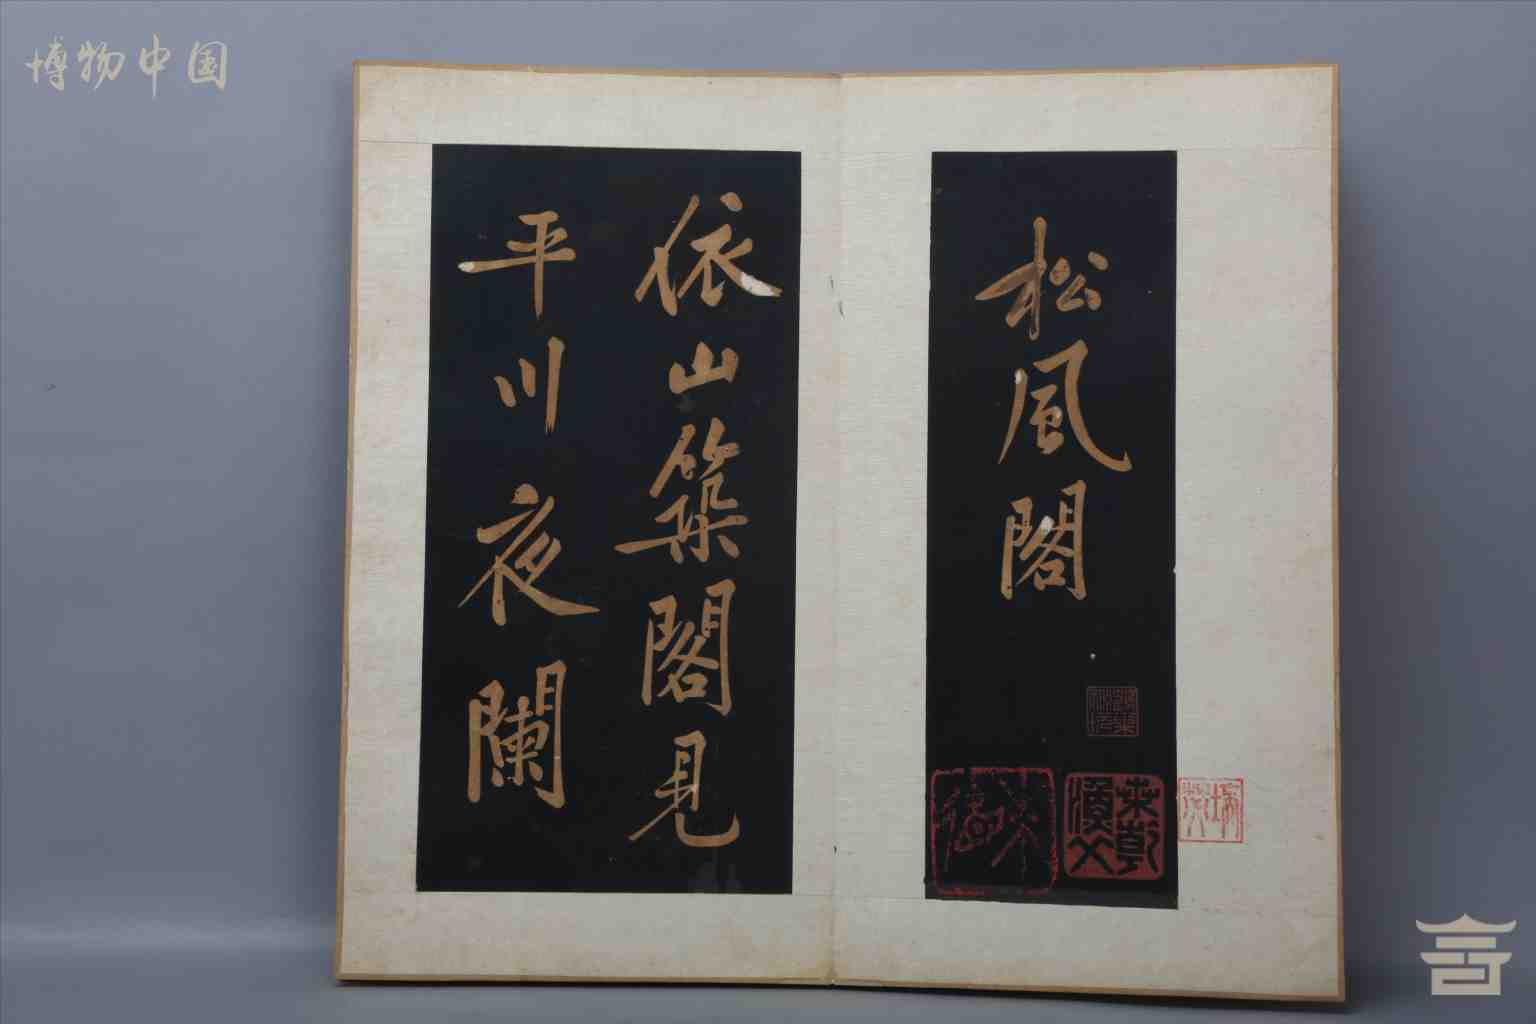 博物中国
松風閣
依山築閣見
平川夜闌